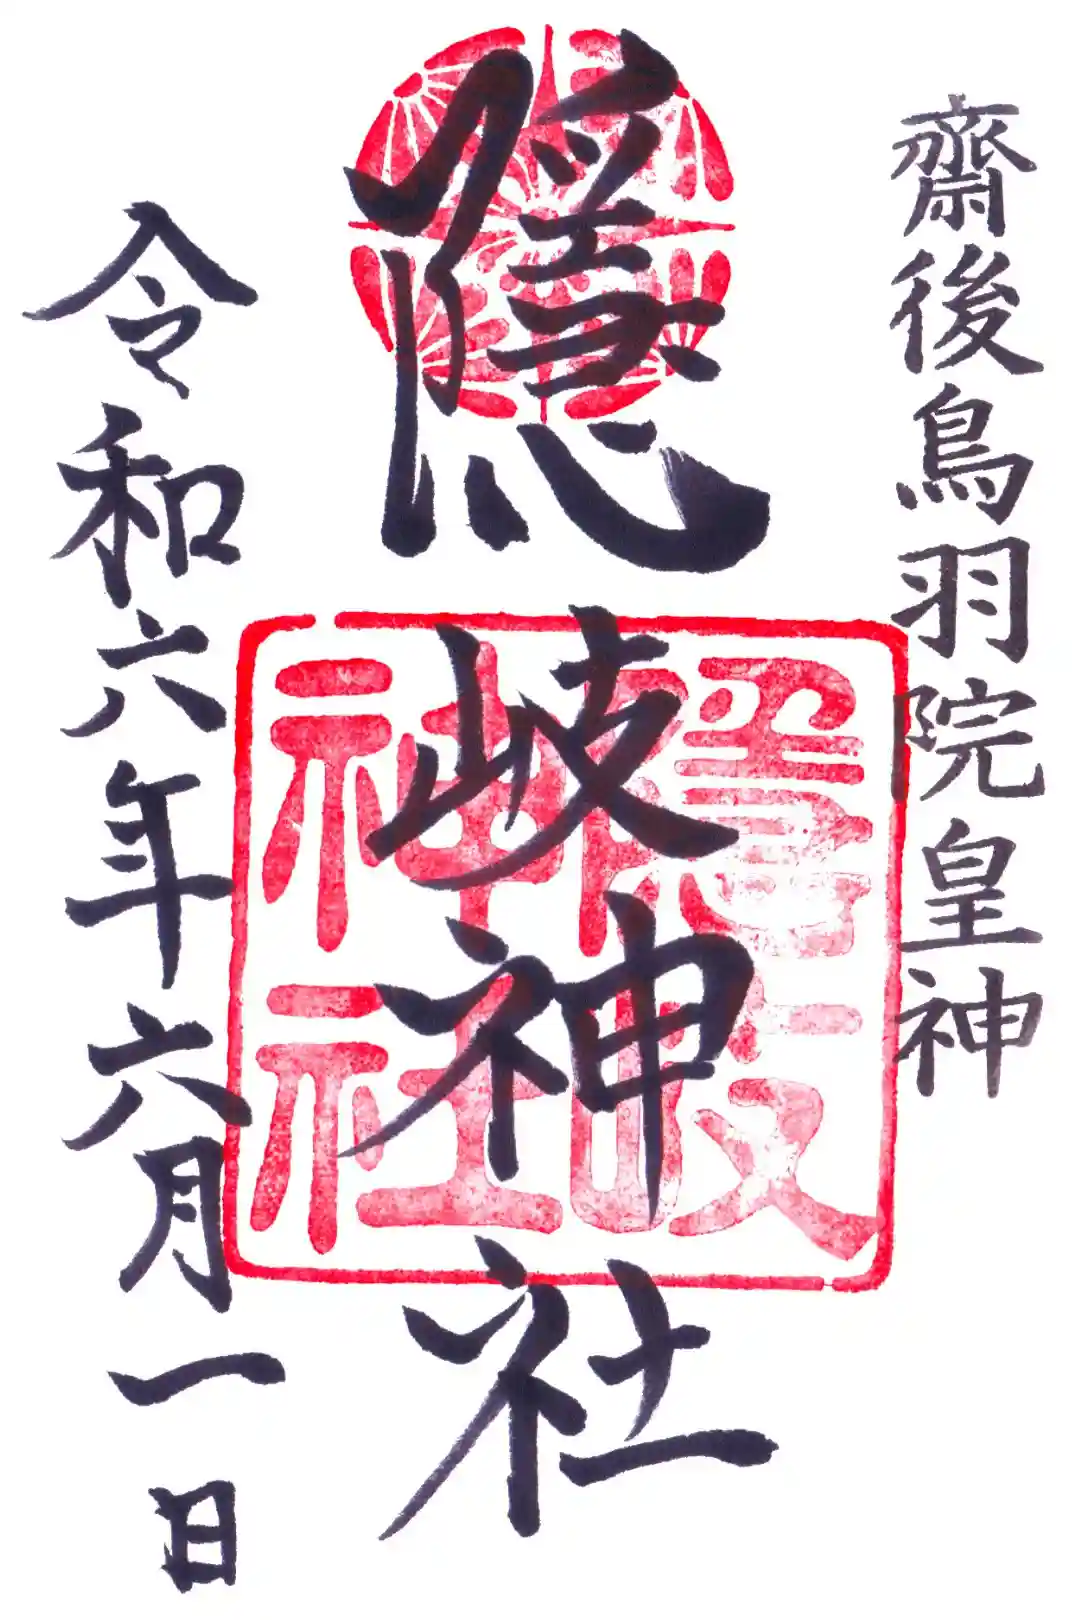 齋後鳥羽院皇神
隠岐神社
隠岐
神社
令和六年六月一日